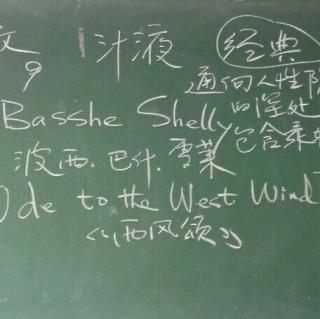 汁液 经典
通向人性
的深处
Basshe Shelly 包含
波西.巴什.雪莱
Ode to the West Wind
《西风颂》